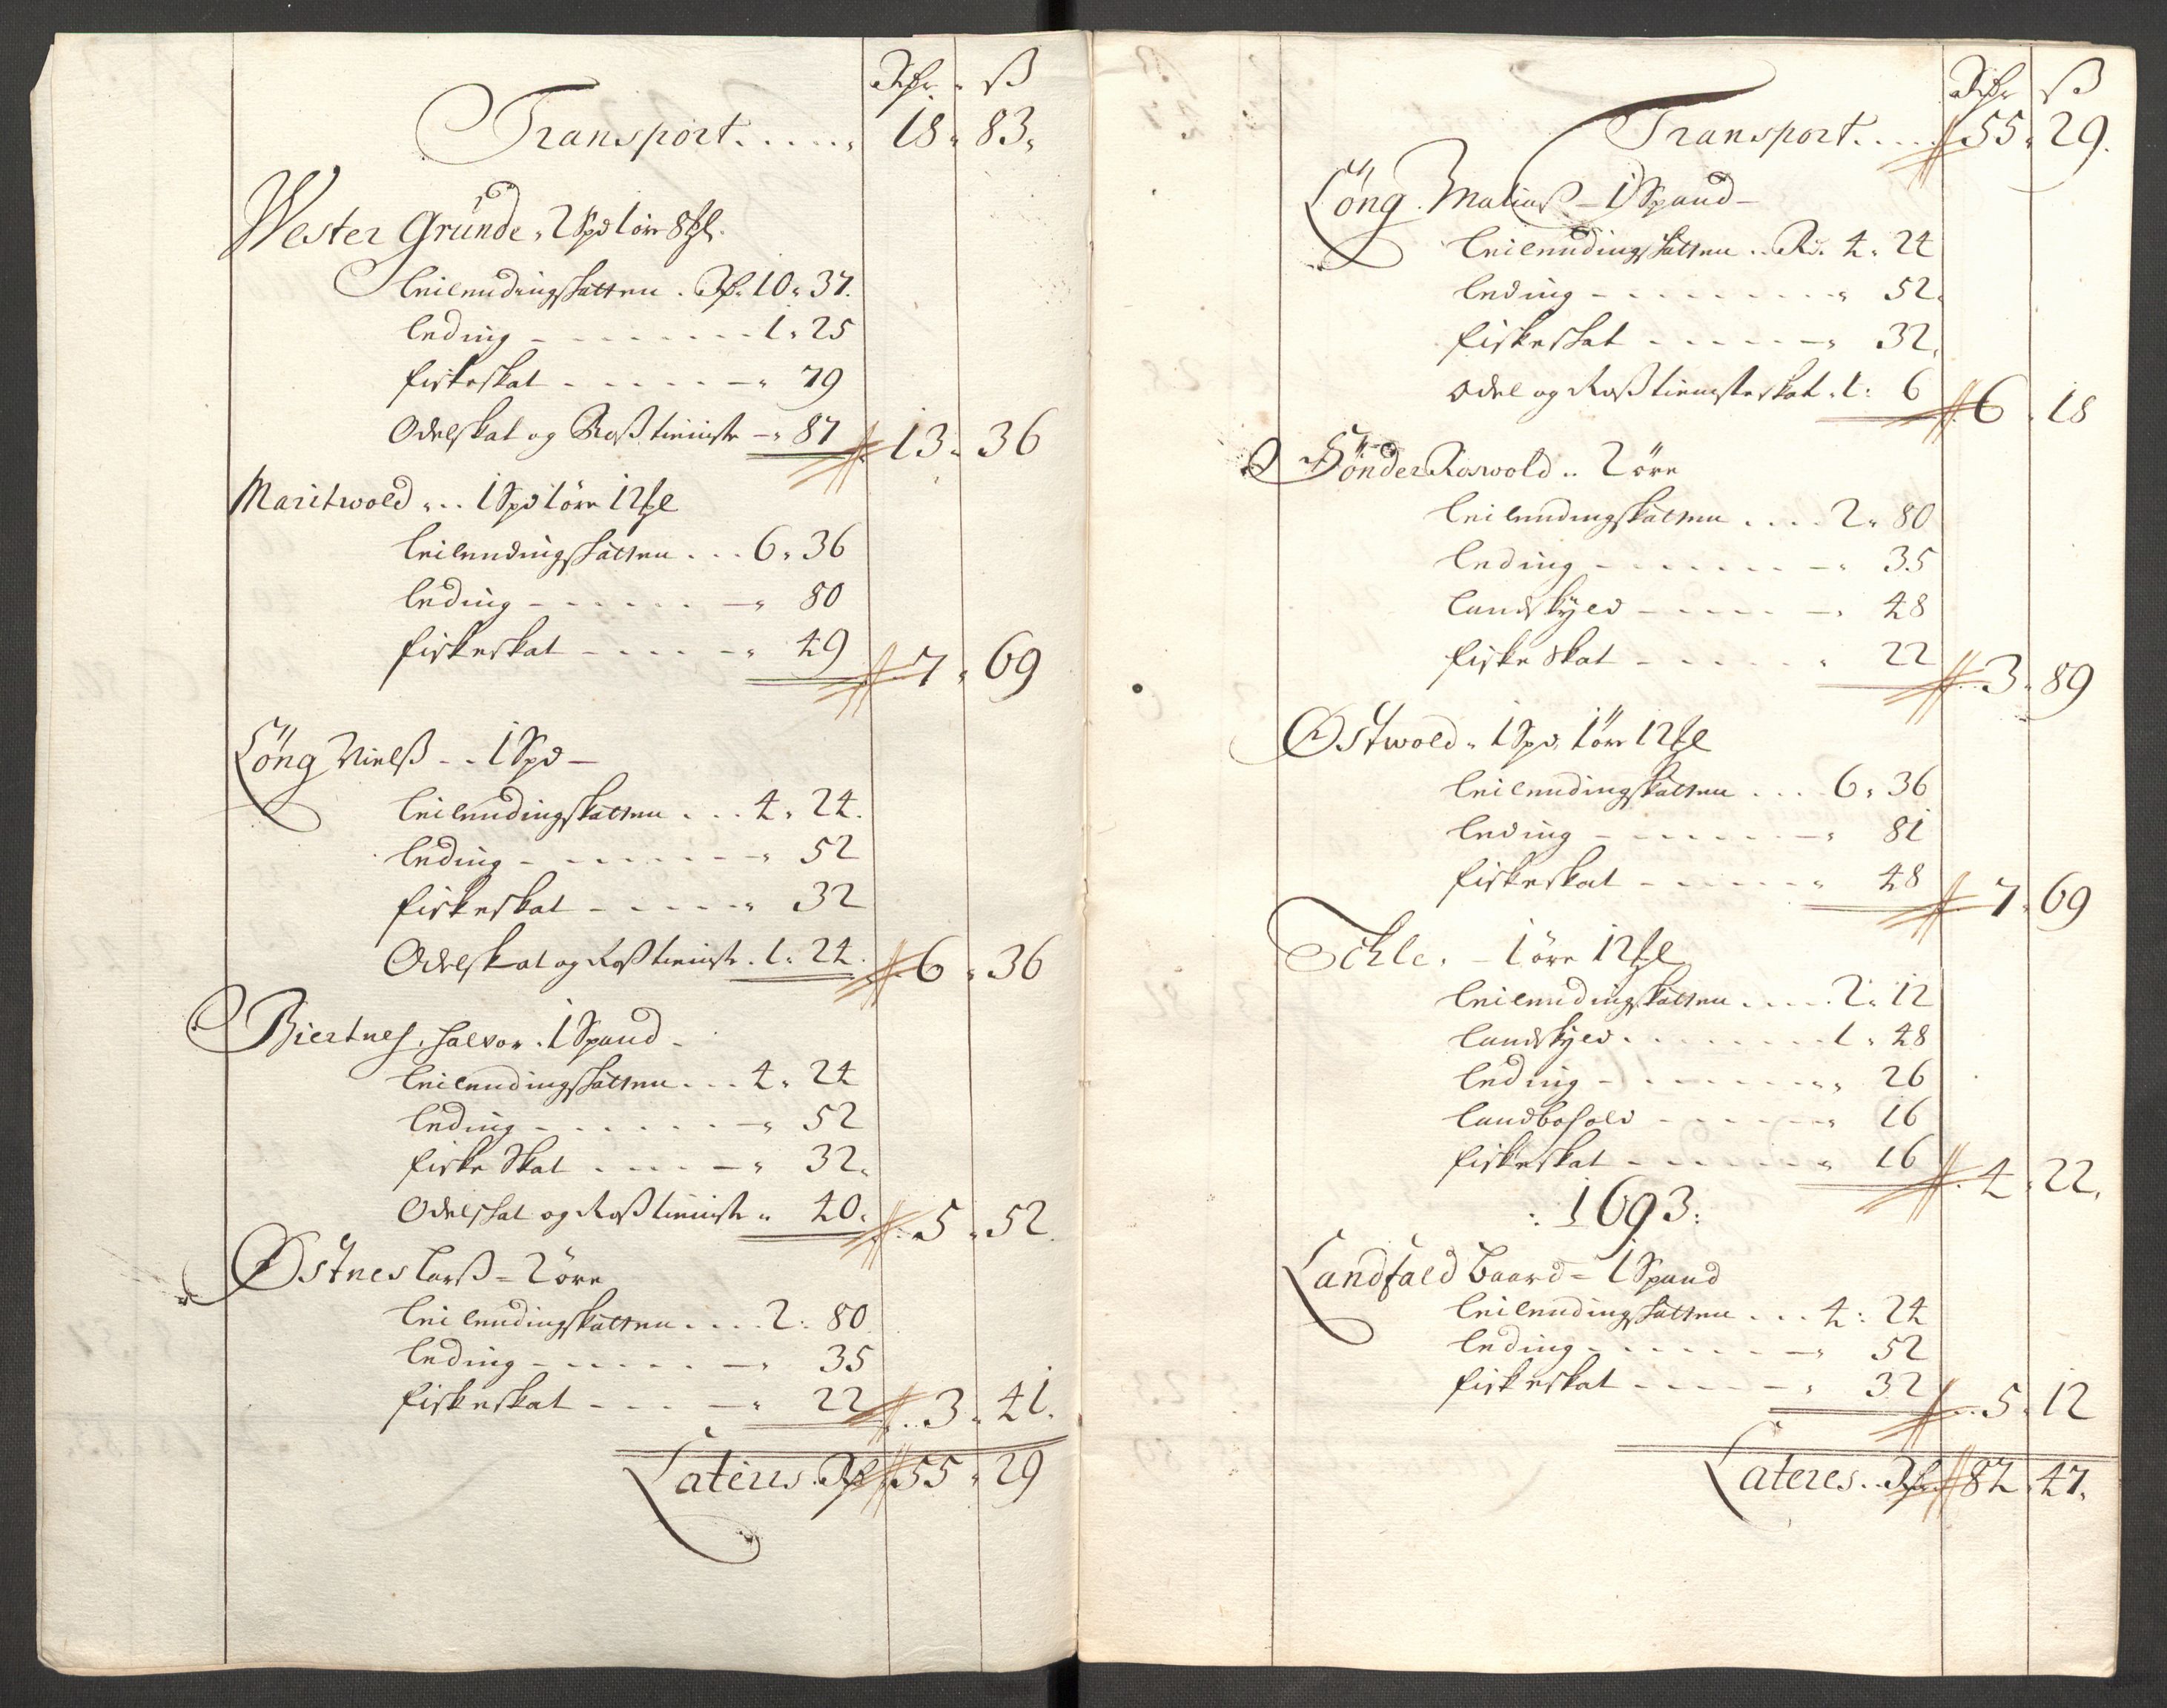 Rdr ß
Transport..... 18 " 83 "
Wester Grunde " 2 Spd 1 ör 8
leilendingsskatten . 10 " 37.
leding - - - - 1 " 25
fiskeskat - - - - " 79
Odelskat og Rosstieniste - " 87 13 " 36
Maritwold ... 1 Spd 1 öre 12
leilendingsskatten ... 6 " 36
leding - - - - " 80
fiskeskat - - - - " 49 7 " 69
Löng Nielß - - 1 Spd -
leilendingskatten ... 4 " 24.
leding - - - - " 52
fiskeskat - - - - " 32
Odelskat og Rosstieniste . 1 " 24. 6 " 36
Biertnes, Halvor . 1 Spand -
leilendingsskatten ... 4 " 24
leding - - - - " 52
fiske Skat - - - - " 32 "
Odelskat og Rosstieniste " 40. 5 " 52.
Östnes Larß = 2 öre
leilendingskatten .... 2 " 80
leding - - - - " 35
fiskeskat - - - - " 22 3 " 41.
Lateris. 55 " 29
Rdr ß
Transport.... 55 " 29.
Löng Matiaß - 1 Spand -
leilendingsskatten .. Rd. 4 " 24
leding - - - - " 52.
fiskeskat - - - - " 32.
odel og Rosstienisteskat . 1 : 6 6 " 18
Sönder Roswold .. 2 öre
leilendingskatten .... 2 " 80
leding - - - - " 35
landskyld - - - - " 48
fiske Skat - - - - " 22 3 " 89
Östwold " 1 Spd 1 ör 12
leilendingskatten ... 6 " 36
leding - - - - " 81
fiskeskat - - - - " 48 7 " 69
Ickle. - 1 öre 12
leilendingskatten .... 2 " 12
landskyld ........ 1 " 48
leding - - - - " 26
landbohold - - - - " 16
fiskeskat - - - - " 16 4 " 22.
: 1693 :
Landfald Baard = 1 Spand
leilendingsskatten ... 4 : 24
leding - - - - " 52
fiskeskat - - - - " 32 5 " 12
Lateres.. 82 " 47.